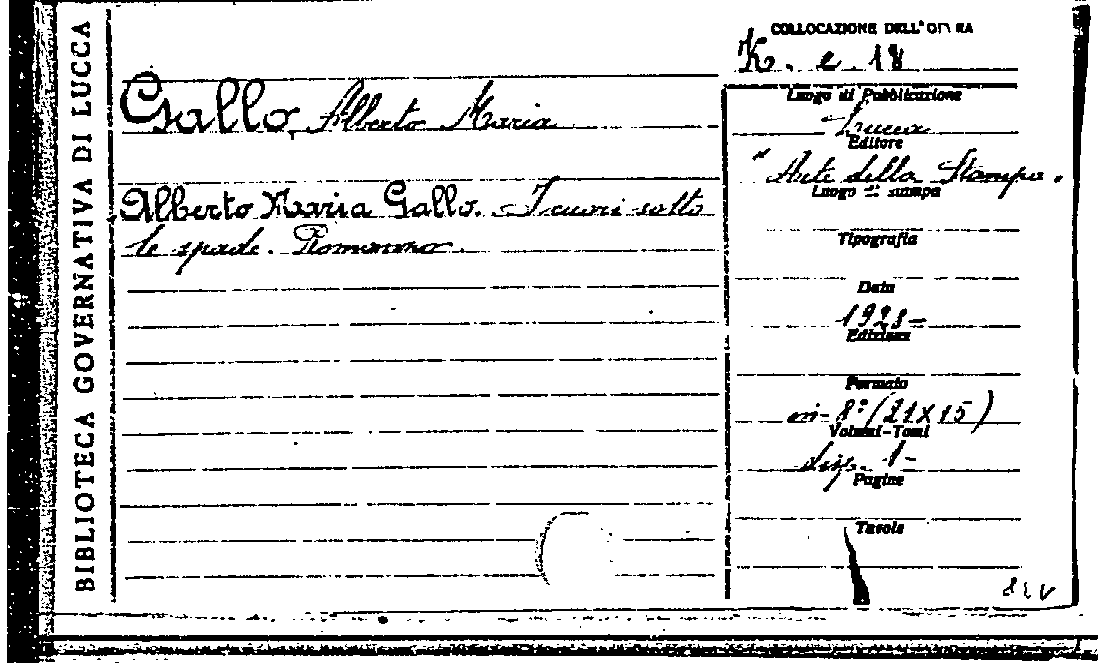 BIBLIOTECA GOVERNATIVA DI LUCCA
COLLOCAZIONE DELL'OPERA
K. e. 18
Gallo, Alberto Maria
Luogo di Pubblicazione
Lucca
Editore
"Arte della Stampa.
Luogo di stampa
Alberto Maria Gallo. I cuori sotto
le spade. Romanzo.
Tipografia
Data
1923-
Edizione
Formato
in-8º (21x15)
Volumi-Tomi
disp. 1-
Pagine
Tavole